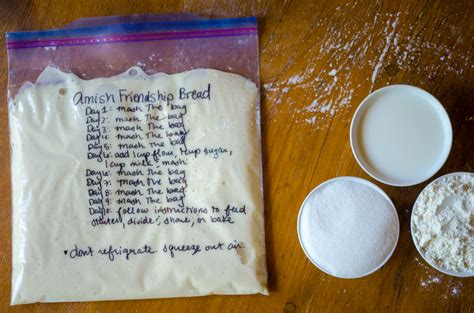 Amish Friendship Bread
Day 1: mash the bag
Day 2: mash the bag
Day 3: mash the bag
Day 4: mash the bag
Day 5: mash the bag
Day 6: add 1 cup flour, 1 cup sugar,
1 cup milk - mash
Day 6: mash the bag
Day 7: mash the bag
Day 8: mash the bag
Day 9: mash the bag
Day 10: follow instructions to feed
starter, divide, share, or bake
♥ don't refrigrate. squeeze out air.